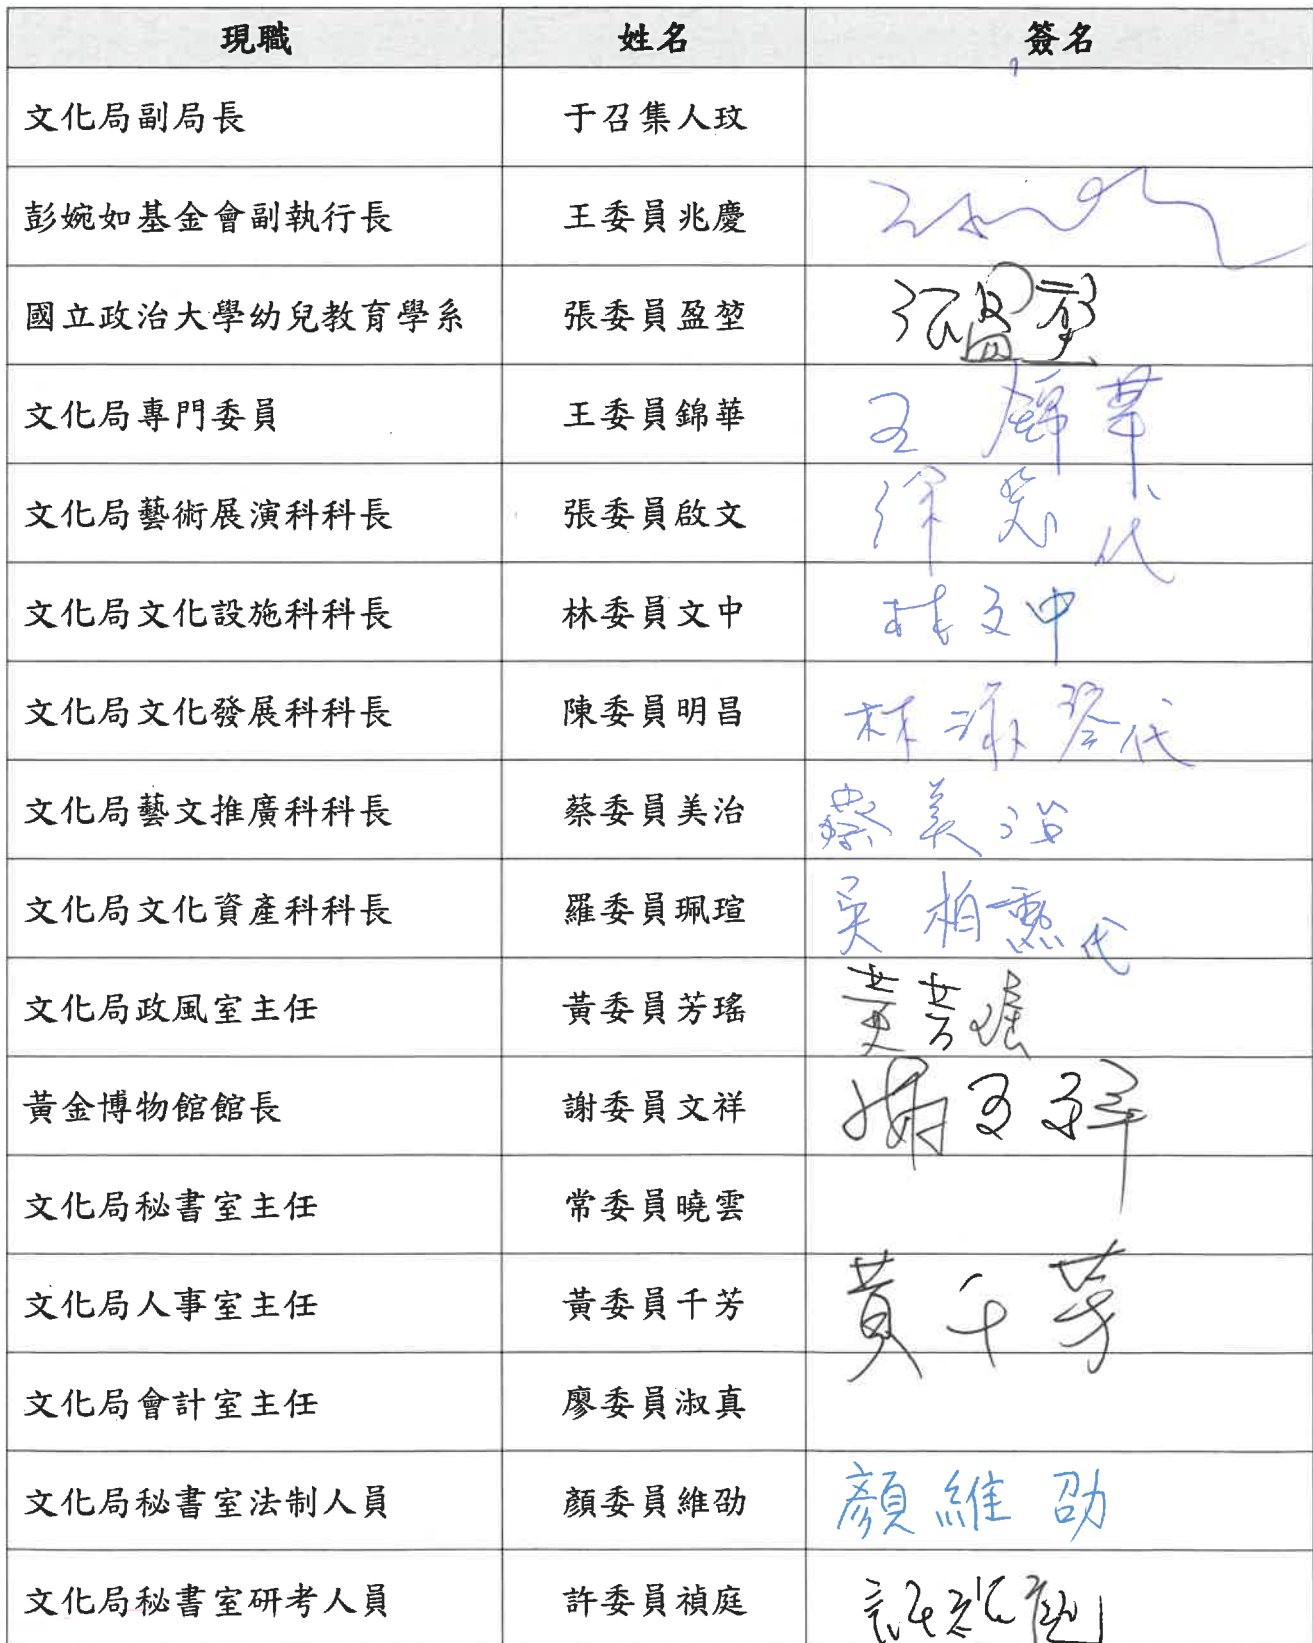 現職 姓名 簽名
文化局副局長 于召集人玟
彭婉如基金會副執行長 王委員兆慶
國立政治大學幼兒教育學系 張委員盈堃 張盈堃
文化局專門委員 王委員錦華 王錦華
文化局藝術展演科科長 張委員啟文 代
文化局文化設施科科長 林委員文中 林文中
文化局文化發展科科長 陳委員明昌 林淑琴代
文化局藝文推廣科科長 蔡委員美治 蔡美治
文化局文化資產科科長 羅委員珮瑄 吳柏勳代
文化局政風室主任 黃委員芳瑤 黃芳瑤
黃金博物館館長 謝委員文祥 謝文祥
文化局秘書室主任 常委員曉雲
文化局人事室主任 黃委員千芳 黃千芳
文化局會計室主任 廖委員淑真
文化局秘書室法制人員 顏委員維劭 顏維劭
文化局秘書室研考人員 許委員禎庭 許禎庭